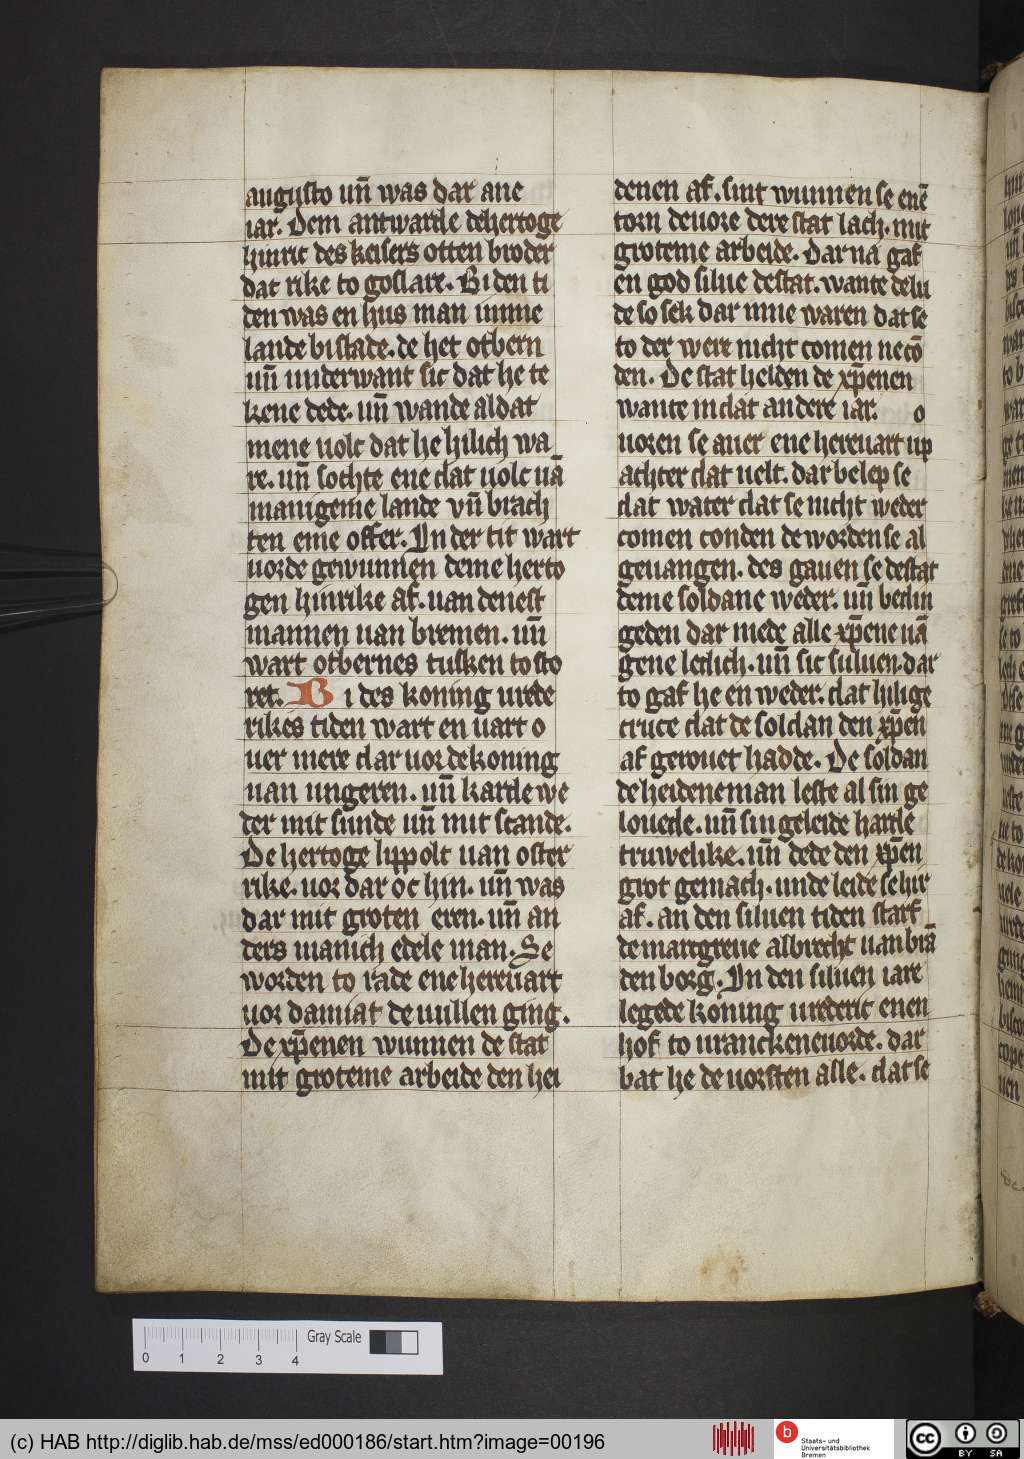 augusto un̄ was dar ane
iar. Dem antwarde de hertoge
hinric des keisers otten broder
dat rike to goslare. Bi den ti
den was en hus man inme
lande bi stade. de het otbern
un̄ underwant sic dat he te
kene dede. un̄ wande al dat
mene uolc dat he hilich wa
re. un̄ sochte ene dat uolc uā
manigeme lande vn̄ brach
ten eme offer. In der tit wart
uorde gewunnen deme herto
gen hinrike af. uan den est
mannen uan bremen. un̄
wart otbernes tusken to sto
ret. Bi des koning urede
rikes tiden wart en uart o
uer mere dar uor de koning
uan ungeren. un̄ karde we
der mit sunde un̄ mit scande.
De hertoge lippolt uan oster
rike. uor dar oc hin. un̄ was
dar mit groten eren. un̄ an
ders manich edele man. Se
worden to rade ene hereuart
uor damiat de uullen ging.
De xp̄enen wunnen de stat
mit groteme arbeide den hei
denen af. sint wunnen se enē
torn de uore dere stat lach. mit
groteme arbeide. Dar na gaf
en god silue de stat. wante de lu
de so sek dar inne waren dat se
to der were nicht comen ne cō
den. De stat helden de xp̄enen
wante in dat andere iar. o
uoren se auer ene hereuart up
achter dat uelt. dar belep se
dat water dat se nicht weder
comen conden de worden se al
geuangen. des gauen se de stat
deme soldane weder. un̄ bedin
geden dar mede alle xp̄ene uā
gene ledich. un̄ sic suluen. dar
to gaf he en weder. dat hilige
cruce dat de soldan den xp̄en
af gerouet hadde. De soldan
de heidene man leste al sin ge
louede. un̄ sin geleide harde
truwelike. un̄ dede den xp̄en
grot gemach. unde leide se hir
af. an den siluen tiden starf
de marcgreue albrecht uan brā
den borg. In den siluen iare
legede koning urederic enen
hof to uranckeneuorde. dar
bat he de uorsten alle. dat se
0 1 2 3 4 Gray Scale
(c) HAB http://diglib.hab.de/mss/ed000186/start.htm?image=00196
b Staats- und
Universitätsbibliothek
Bremen
cc BY SA